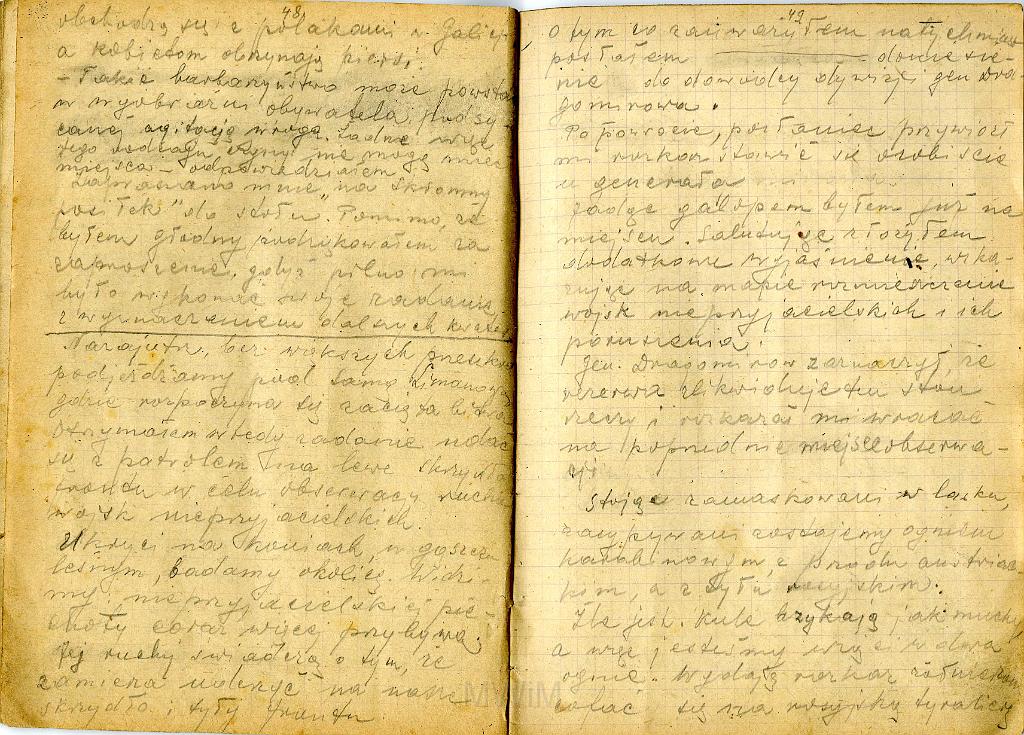 48
obchodzą się z polakami w Galicji
a kobietom obrzynają piersi!
- Takie barbarzyństwo może powstać
w wyobraźni obywatela, podsy-
canej agitacją wroga. Żadne więc
tego rodzaju czyny nie mogą mieć
miejsca - odpowiedziałem
Zapraszano mnie "na skromny
posiłek" do stołu. Pomimo, że
byłem głodny podziękowałem za
zaproszenie, gdyż pilno mi
było wykonać swoje zadanie
z wyznaczeniem dalszych kwater
Nazajutrz, bez większych przeszkód
podjeżdżamy pod samą Limanową
gdzie rozpoczyna się zacięta bitwa
Otrzymałem wtedy zadanie udać
się z patrolem na lewe skrzydło
frontu w celu obserwacji ruchu
wojsk nieprzyjacielskich.
Ukryci na koniach, w gąszczu
leśnym, badamy okolicę. Widzi-
my, nieprzyjacielskiej pie-
choty coraz więcej przybywa.
Jej ruchy świadczą o tym, że
zamierza uderzyć na nasze
skrzydło i tyły frontu
49
o tym co zauważyłem natychmiast
posłałem doniesie-
nie do dowódcy dywizji gen Dra-
gomirowa.
Po powrocie, posłaniec przywiózł
mi rozkaz stawić się osobiście
u generała
Jadąc galopem byłem już na
miejscu. Salutując złożyłem
dodatkowe wyjaśnienie, wska-
zując na mapie rozmieszczenie
wojsk nieprzyjacielskich i ich
poruszenia.
Gen. Dragomirow zaznaczył, że
rezerwa zlikwiduje ten stan
rzeczy i rozkazał mi wracać
na poprzednie miejsce obserwa-
cji
Stojąc zamaskowani w lasku,
zasypywani zostajemy ogniem
karabinowym z przodu austriac-
kim, a z tyłu rosyjskim.
Źle jest. Kule bzykają jak muchy
a więc jesteśmy wzięci w dwa
ognie. Wydaję rozkaz żołnierzom
cofać się na rosyjską tyralierę
MWiM